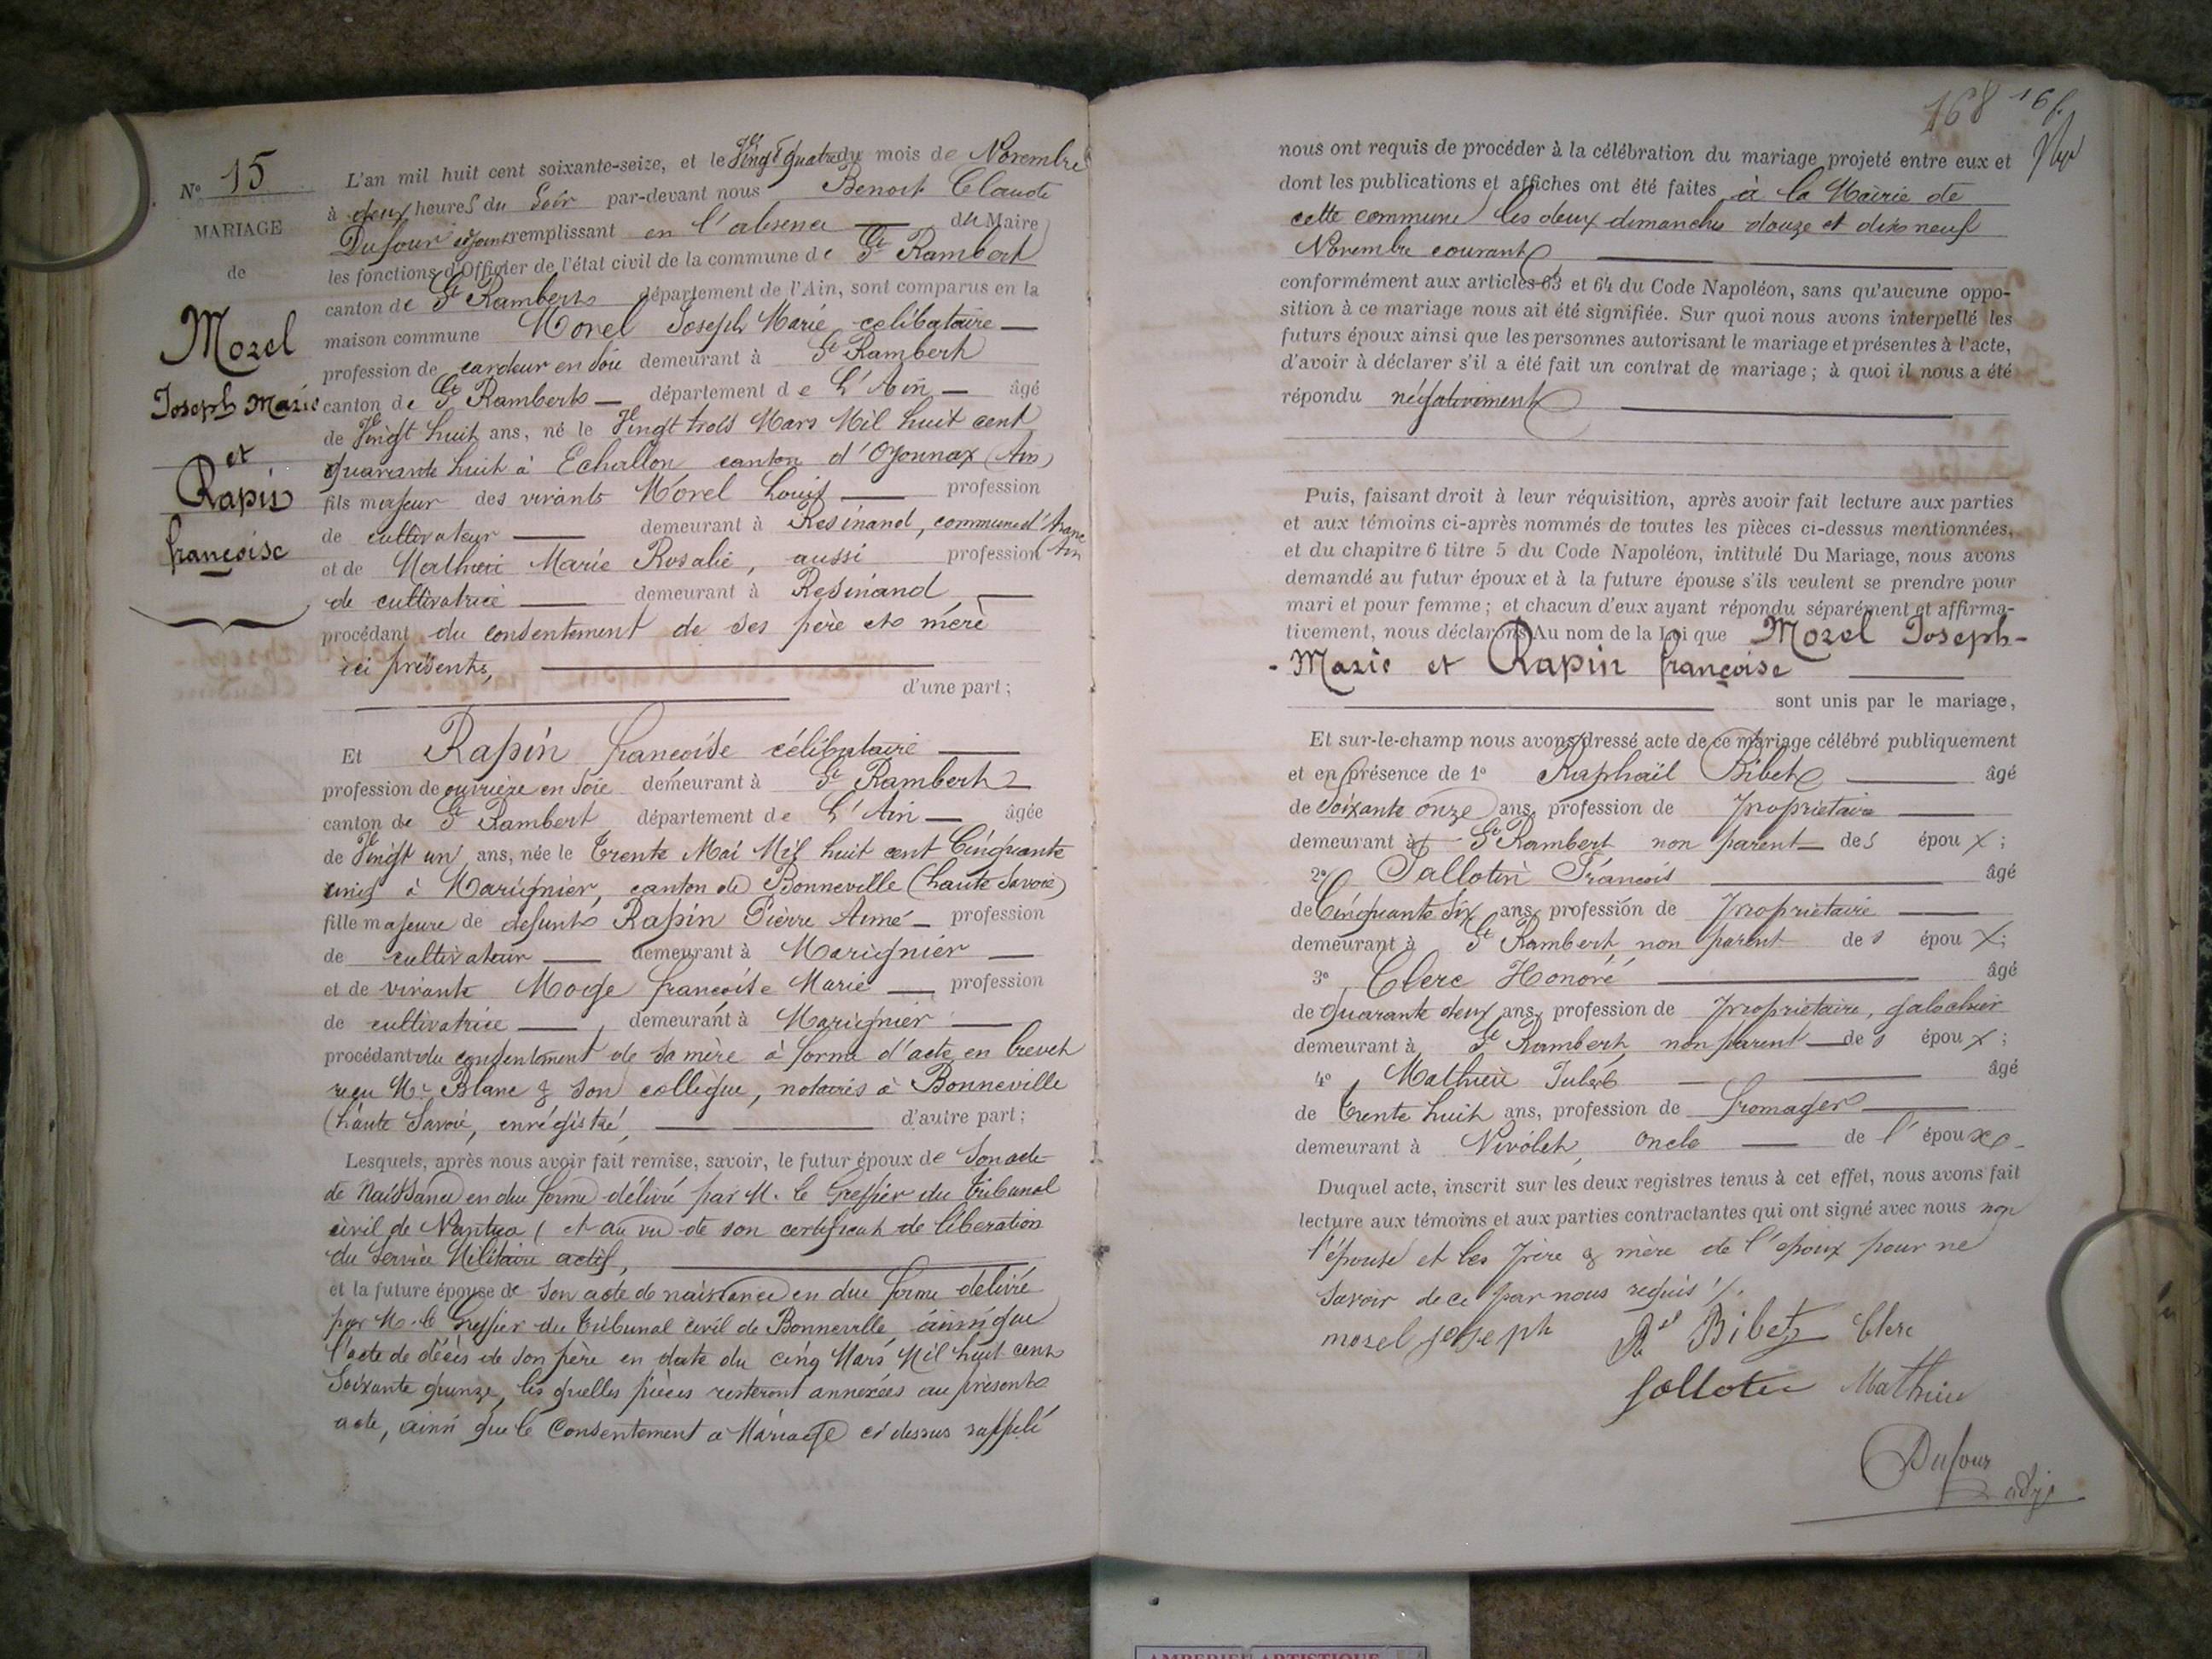 N° 15
MARIAGE
de
Morel
Joseph Marie
et
Rapin
françoise
L'an mil huit cent soixante-seize, et le Vingt quatre du mois de Novembre
à deux heures du Soir par-devant nous Benoit Claude
Dufour adjoint remplissant en l'absence du Maire
les fonctions d'Officier de l'état civil de la commune de St Rambert
canton de St Rambert département de l'Ain, sont comparus en la
maison commune Morel Joseph Marie célibataire
profession de cardeur en soie demeurant à St Rambert
canton de St Rambert département de L'Ain âgé
de Vingt huit ans, né le Vingt trois Mars Mil huit cent
quarante huit à Echallon canton d'Oyonnax (Ain)
fils majeur des vivants Morel Louis profession
de cultivateur demeurant à Resinand, commune d'Aranc
Ain
et de Mathieu Marie Rosalie, aussi profession
de cultivatrice demeurant à Resinand,
procédant du consentement de ses père et mère
ici présents,
d'une part;
Et Rapin françoise célibataire
profession de ouvrière en soie demeurant à St Rambert
canton de St Rambert département de L'Ain âgée
de Vingt un ans, née le trente Mai Mil huit cent Cinquante
cinq à Marignier, canton de Bonneville (haute Savoie)
fille majeure de défunt Rapin Pierre Aimé profession
de cultivateur demeurant à Marignier
et de vivante Moge françoise Marie profession
de cultivatrice, demeurant à Marignier
procédant du consentement de sa mère à forme d'acte en brevet
reçu Me Blanc & son collègue, notaires à Bonneville
(haute Savoie, enrégistré, d'autre part;
Lesquels, après nous avoir fait remise, savoir, le futur époux de Son acte
de Naissance en due forme délivré par M. le Greffier du tribunal
civil de Nantua (et au vu de son certificat de libération
du Service Militaire actif,
et la future épouse de Son acte de naissance en due forme délivré
par M. le Greffier du tribunal Civil de Bonneville, ainsi que
l'acte de décès de son père en date du cinq Mars Mil huit cent
Soixante quinze, les quelles pièces resteront annexées au présent
acte, ainsi que le Consentement à Mariage ci dessus rappelé
168
nous ont requis de procéder à la célébration du mariage projeté entre eux et
dont les publications et affiches ont été faites à la Mairie de
cette commune les deux dimanches douze et dix neuf
Novembre courant,
conformément aux articles 63 et 64 du Code Napoléon, sans qu'aucune oppo-
sition à ce mariage nous ait été signifiée. Sur quoi nous avons interpellé les
futurs époux ainsi que les personnes autorisant le mariage et présentes à l'acte,
d'avoir à déclarer s'il a été fait un contrat de mariage; à quoi il nous a été
répondu négativement
Puis, faisant droit à leur réquisition, après avoir fait lecture aux parties
et aux témoins ci-après nommés de toutes les pièces ci-dessus mentionnées,
et du chapitre 6 titre 5 du Code Napoléon, intitulé Du Mariage, nous avons
demandé au futur époux et à la future épouse s'ils veulent se prendre pour
mari et pour femme; et chacun d'eux ayant répondu séparément et affirma-
tivement, nous déclarons Au nom de la Loi que Morel Joseph-
-Marie et Rapin françoise
sont unis par le mariage,
Et sur-le-champ nous avons dressé acte de ce mariage célébré publiquement
et en présence de 1° Raphaël Bibet âgé
de soixante onze ans, profession de propriétaire
demeurant à St Rambert non parent des époux;
2° Jallotin François âgé
de Cinquante Six ans, profession de propriétaire
demeurant à St Rambert, non parent des époux;
3° Clerc Honoré âgé
de quarante deux ans, profession de propriétaire,
demeurant à St Rambert, non parent des époux;
4° Mathieu âgé
de trente huit ans, profession de fromager
demeurant à Nivolet, Oncle de l'époux
Duquel acte, inscrit sur les deux registres tenus à cet effet, nous avons fait
lecture aux témoins et aux parties contractantes qui ont signé avec nous non
l'épouse et les père & mère de l'époux pour ne
Savoir de ce par nous requis
morel joseph Rel Bibet Clerc
Jallotin Mathieu
Dufour
adjt
AMBERIEU ARTISTIQUE